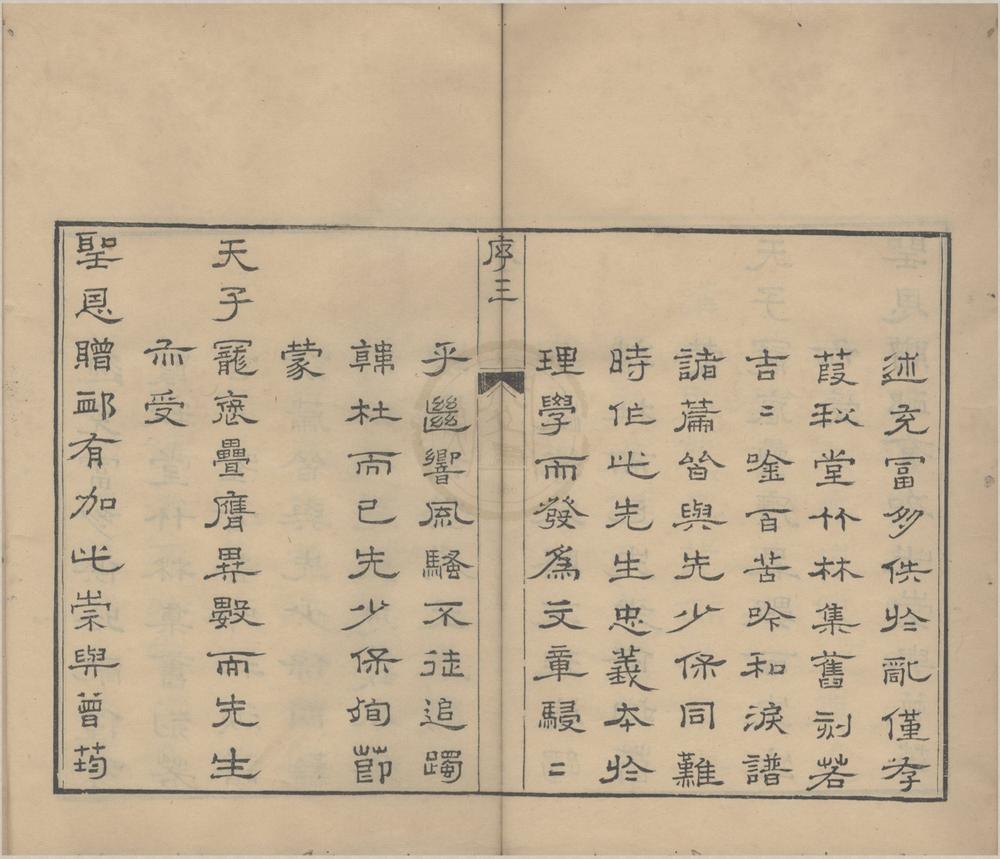 述充冨多佚於亂僅存
葭秋堂竹林集舊刻若
吉〻唫百苦吟和淚譜
諸篇皆與先少保同難
時作此先生忠義本於
理學而發爲文章駸〻
序三
乎幽響風騷不徒追躅
韓杜而已先少保殉節
蒙
天子寵褒疊膺異數而先生
亦受
聖恩贈卹有加此崇與曾筠